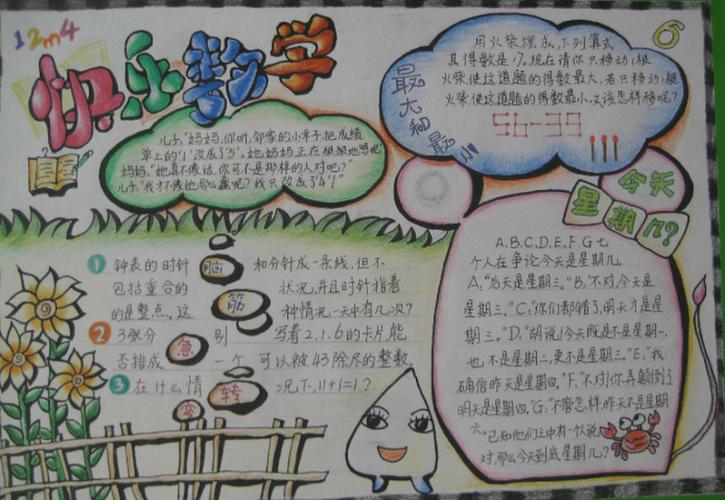 12m4
快乐数学
儿子:"妈妈,你听,邻家的小辛子把成绩
单上的"1"改成了"5"。她妈妈正在狠狠地骂呢
妈妈:"她真不像话,你可不是那样的人对吧?"
儿子:"我才不像她那么贪呢?我只改成了"4"!"
最大和最小
用火柴摆成,下列算式
其得数是17。现在请你只移动1根
火柴,使这道题的得数最大,若只移动1根
火柴,使这道题的得数最小,又该怎样移呢?
56-39
6
今天
星期几?
脑筋急转弯
1 钟表的时针和分针成一条线,但不
包括重合的状况,并且时针指着
的是整点。这种情况一天中有几次?
2 3张分别写着2.1.6的卡片能
否排成一个可以被43除尽的整数
3 在什么情况下,11+1=1?
A.B.C.D.E.F.G七
个人在争论今天是星期几
A:"后天是星期三。"B:"不对,今天是
星期三。"C:"你们都错了,明天才是星
期三。"D:"胡说!今天既是不是星期一、
也不是星期二,更不是星期三。"E:"我
确信昨天是星期四。"F:"不对!你弄颠倒了
明天是星期四。"G:"不管怎样,昨天不是星期
六。"已知他们之中有一个人说
对,那么今天到底星期几?